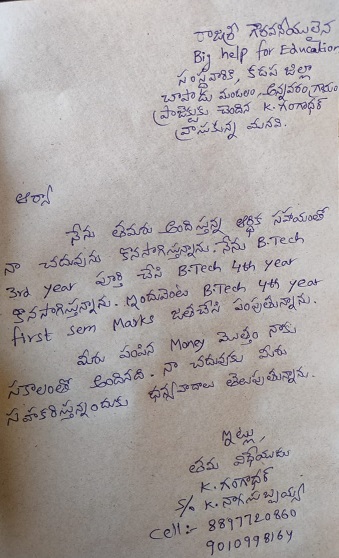 రాజశ్రీ గౌరవనీయులైన
Big help for Education
సంస్థవారికి, కడప జిల్లా
చాపాడు మండలం అన్నవరం గ్రామం
ప్రాజెక్టుకు చెందిన K. గంగాధర్
వ్రాసుకున్న మనవి.
ఆర్యా
నేను తమరు అందిస్తున్న ఆర్థిక సహాయంతో
నా చదువును కొనసాగిస్తున్నాను. నేను B.Tech
3rd year పూర్తి చేసి B.Tech 4th year
కొనసాగిస్తున్నాను. ఇందువెంట B.Tech 4th year
first sem Marks జతచేసి పంపుతున్నాను.
మీరు పంపిన Money మొత్తం నాకు
సకాలంతో అందినది. నా చదువుకు మీరు
సహకరిస్తున్నందుకు ధన్యవాదాలు తెలుపుతున్నాను.
ఇట్లు,
తమ విధేయుడు
K. గంగాధర్
S/o K. నాగసుబ్బయ్య
Cell:- 8897720860
9010998164